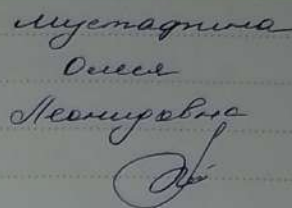 Мустафина
Олеся
Леонидовна